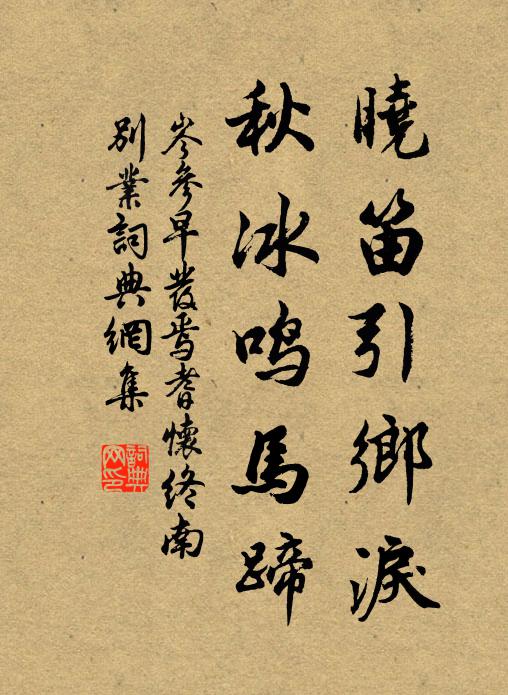 曉笛引鄉淚
秋冰鳴馬蹄
岑參早發焉耆懷終南
別業詞典網集
詞典网印